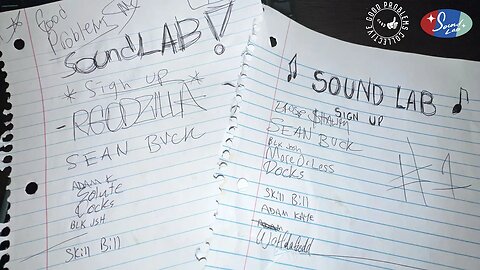 Good
Problems
SoundLAB!
*Sign up*
-REEDZILLA-
SEAN BUCK
ADAM K
Docks
BLK JSH
Skill Bill
SOUND LAB
SIGN UP
SEAN BUCK
BLK Josh
MoreOrLess
Docks
#1
Skill Bill
ADAM KAYE
GOOD PROBLEMS COLLECTIVE
Sound
Lab